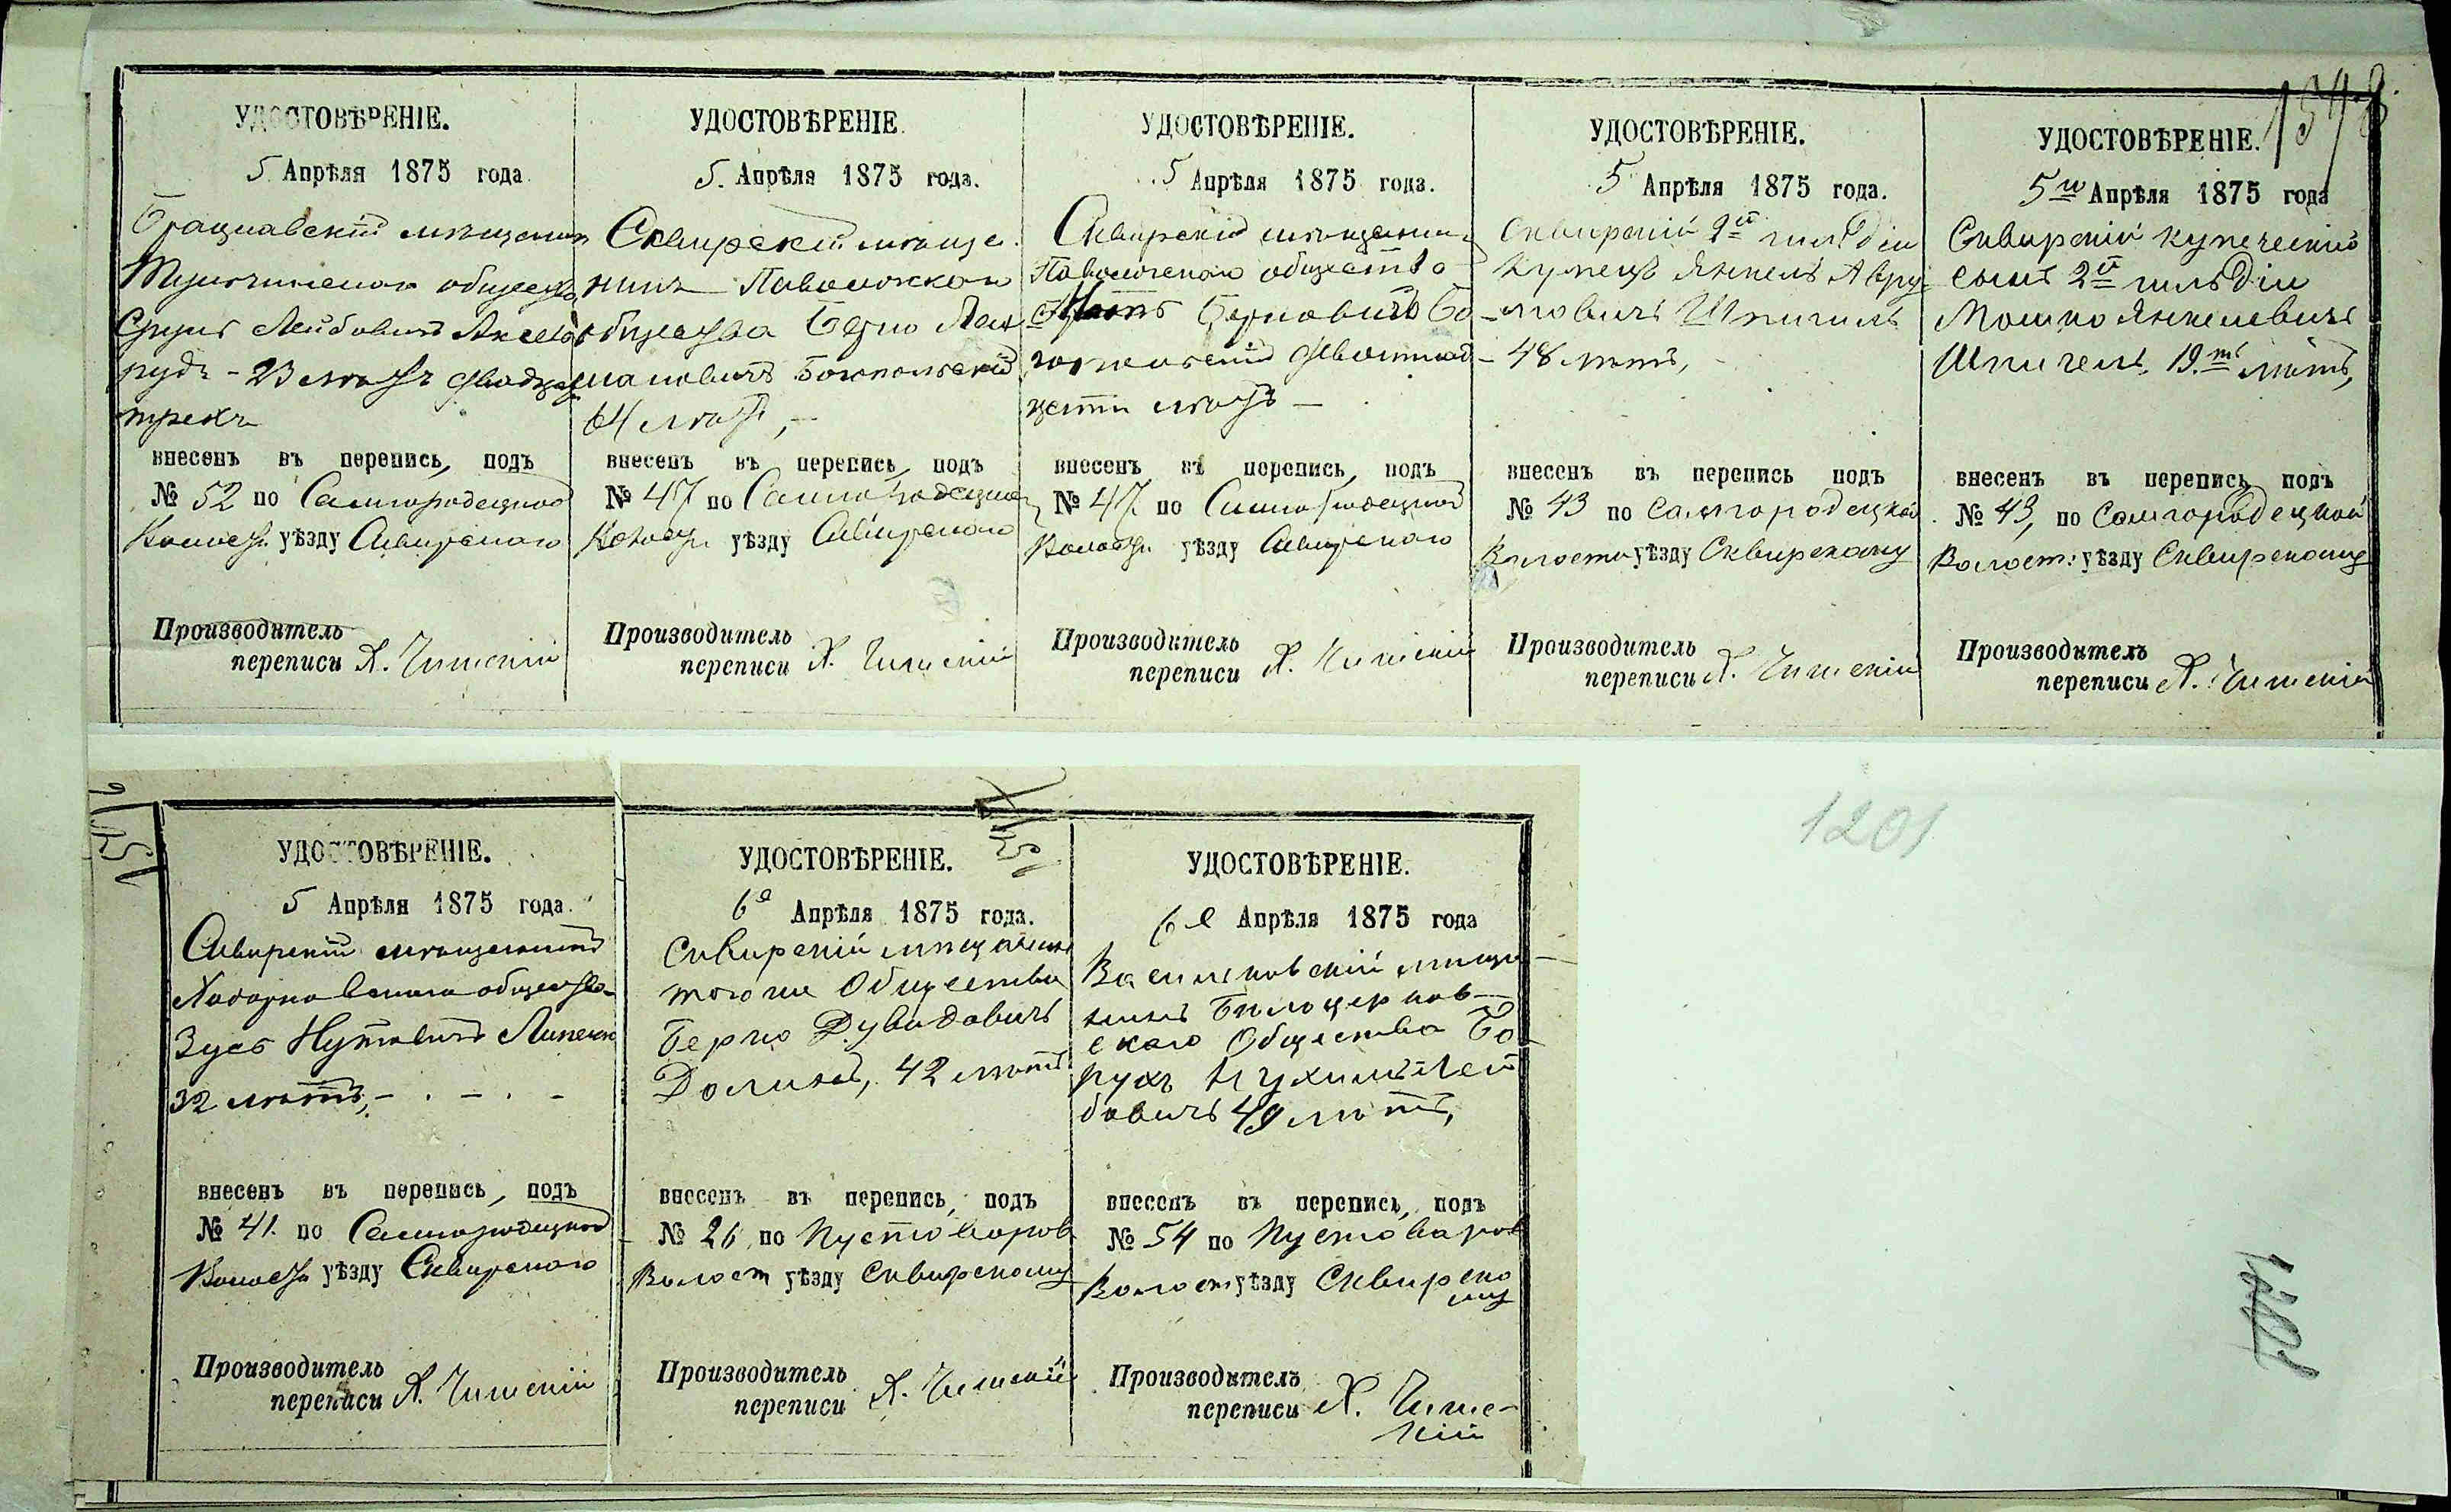 УДОСТОВѢРЕНІЕ.
5 Апрѣля 1875 года
Брацлавскій мѣщанин
общества
Срулъ Лейбовичъ Аксель
рудъ - 23 лѣтъ двадцати
трехъ
внесенъ въ перепись, подъ
№ 52 по Самгородецкой
Волости уѣзду Сквирского
Производитель
переписи Х.
УДОСТОВѢРЕНІЕ
5. Апрѣля 1875 года.
Сквирскій мѣща-
нинъ Паволочскаго
общества Берко Лей
Богопольскій
64 лѣтъ,
внесенъ въ перепись, подъ
№ 47 по Самгородецкой
Волости уѣзду Сквирского
Производитель
переписи Х.
УДОСТОВѢРЕНІЕ.
5 Апрѣля 1875 года.
Сквирскій мѣщанин
Паволочскаго общества
Берковичъ Бо-
гопольскій двенад-
цати лѣтъ
внесенъ въ перепись, подъ
№ 47 по Самгородецкой
Волости уѣзду Сквирского
Производитель
переписи Х.
УДОСТОВѢРЕНІЕ.
5 Апрѣля 1875 года.
Сквирскій 2й гильдіи
купецъ Янкель Авру-
мовичъ Шпигель
48 лѣтъ,
внесенъ въ перепись подъ
№ 43 по Самгородецкой
Волости уѣзду Сквирскому
Производитель
переписи Х.
1548
УДОСТОВѢРЕНІЕ.
5го Апрѣля 1875 года
Сквирскій купеческій
сынъ 2й гильдіи
Мошко Янкелевичъ
Шпигель, 19.ть лѣтъ,
внесенъ въ перепись подъ
№ 43, по Самгородецкой
Волост: уѣзду Сквирскому
Производитель
переписи Х.
УДОСТОВѢРЕНІЕ.
5 Апрѣля 1875 года.
Сквирскій мѣщанинъ
Ходорковскаго общества
Зусь Нутовичъ
32 лѣтъ,
внесенъ въ перепись, подъ
№ 41. по Самгородецкой
Волости уѣзду Сквирского
Производитель
переписи Х.
УДОСТОВѢРЕНІЕ.
6е Апрѣля 1875 года.
Сквирскій мѣщанинъ
того же Общества
Берко Дувидовичъ
42 лѣтъ
внесенъ въ перепись, подъ
№ 26, по Пустоваров
Волост уѣзду Сквирскому
Производитель
переписи Х.
УДОСТОВѢРЕНІЕ.
6е Апрѣля 1875 года
Васильковскій мѣща-
нинъ Билоцерков-
скаго Общества Бо-
рухъ Нухимъ Лей
бовичъ 49 лѣтъ,
внесенъ въ перепись, подъ
№ 54 по Пустоваров
Волост уѣзду Сквирско
му
Производитель
переписи Х.
1201